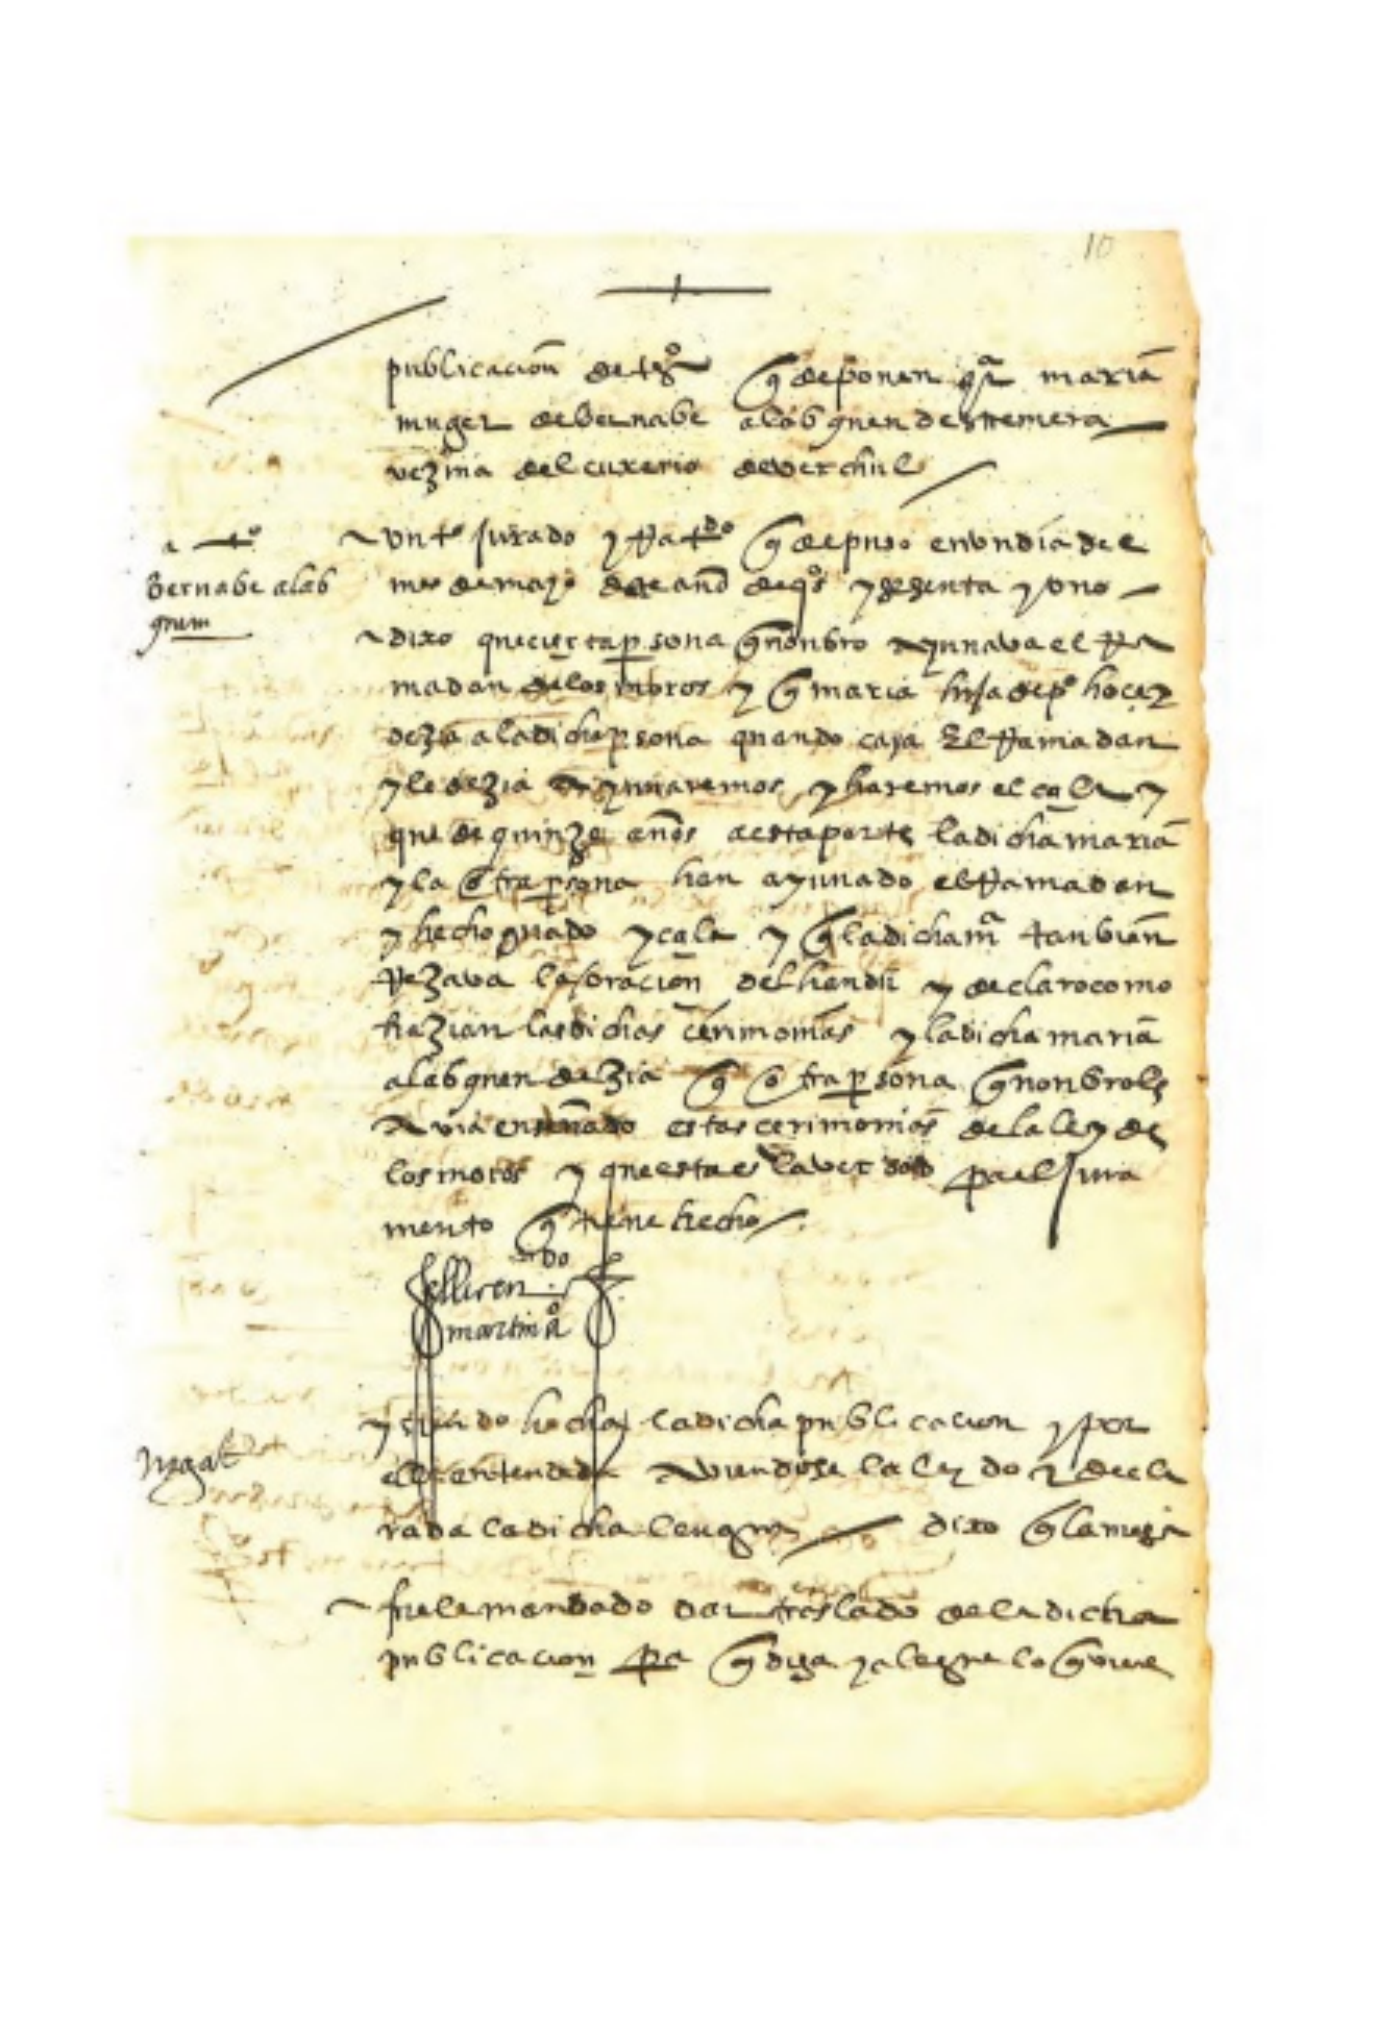 10
publicacion de tgos q deponen qra maria
muger de bernabe alabguen destremera
vezina del cuxerio de verchul
a to
bernabe alab
guem
un to jurado y Ratdo q depuso en un dia del
mes de mayo deste año de qos y sesenta y uno
dixo que cierta psona q nonbro ayunava el Ra
madan de los moros y q maria hija de po hocez
dezia a la dicha psona quando caya el Ramadan
y le dezia ayunaremos y haremos el cala y
que de quinze años a esta parte la dicha maria
y la otra psona han ayunado el Ramadan
y hecho guado y cala y q la dicha ma tanbien
Rezava la oracion del handu y declaro como
hazian las dichas cerimonias y la dicha maria
alabguen dezia q otra psona q nonbro le
avia enseñado estas cerimonias de la ley de
los moros y que esta es la verdad pa el jura
mento q tiene hecho
martin
negat
y siendo hecha la dicha publicacion y por
ella entendida aviendosele leydo y decla
rada la dicha lengua dixo q la niega
fuele mandado dar traslado de la dicha
publicacion pa q diga y alegue lo q viere